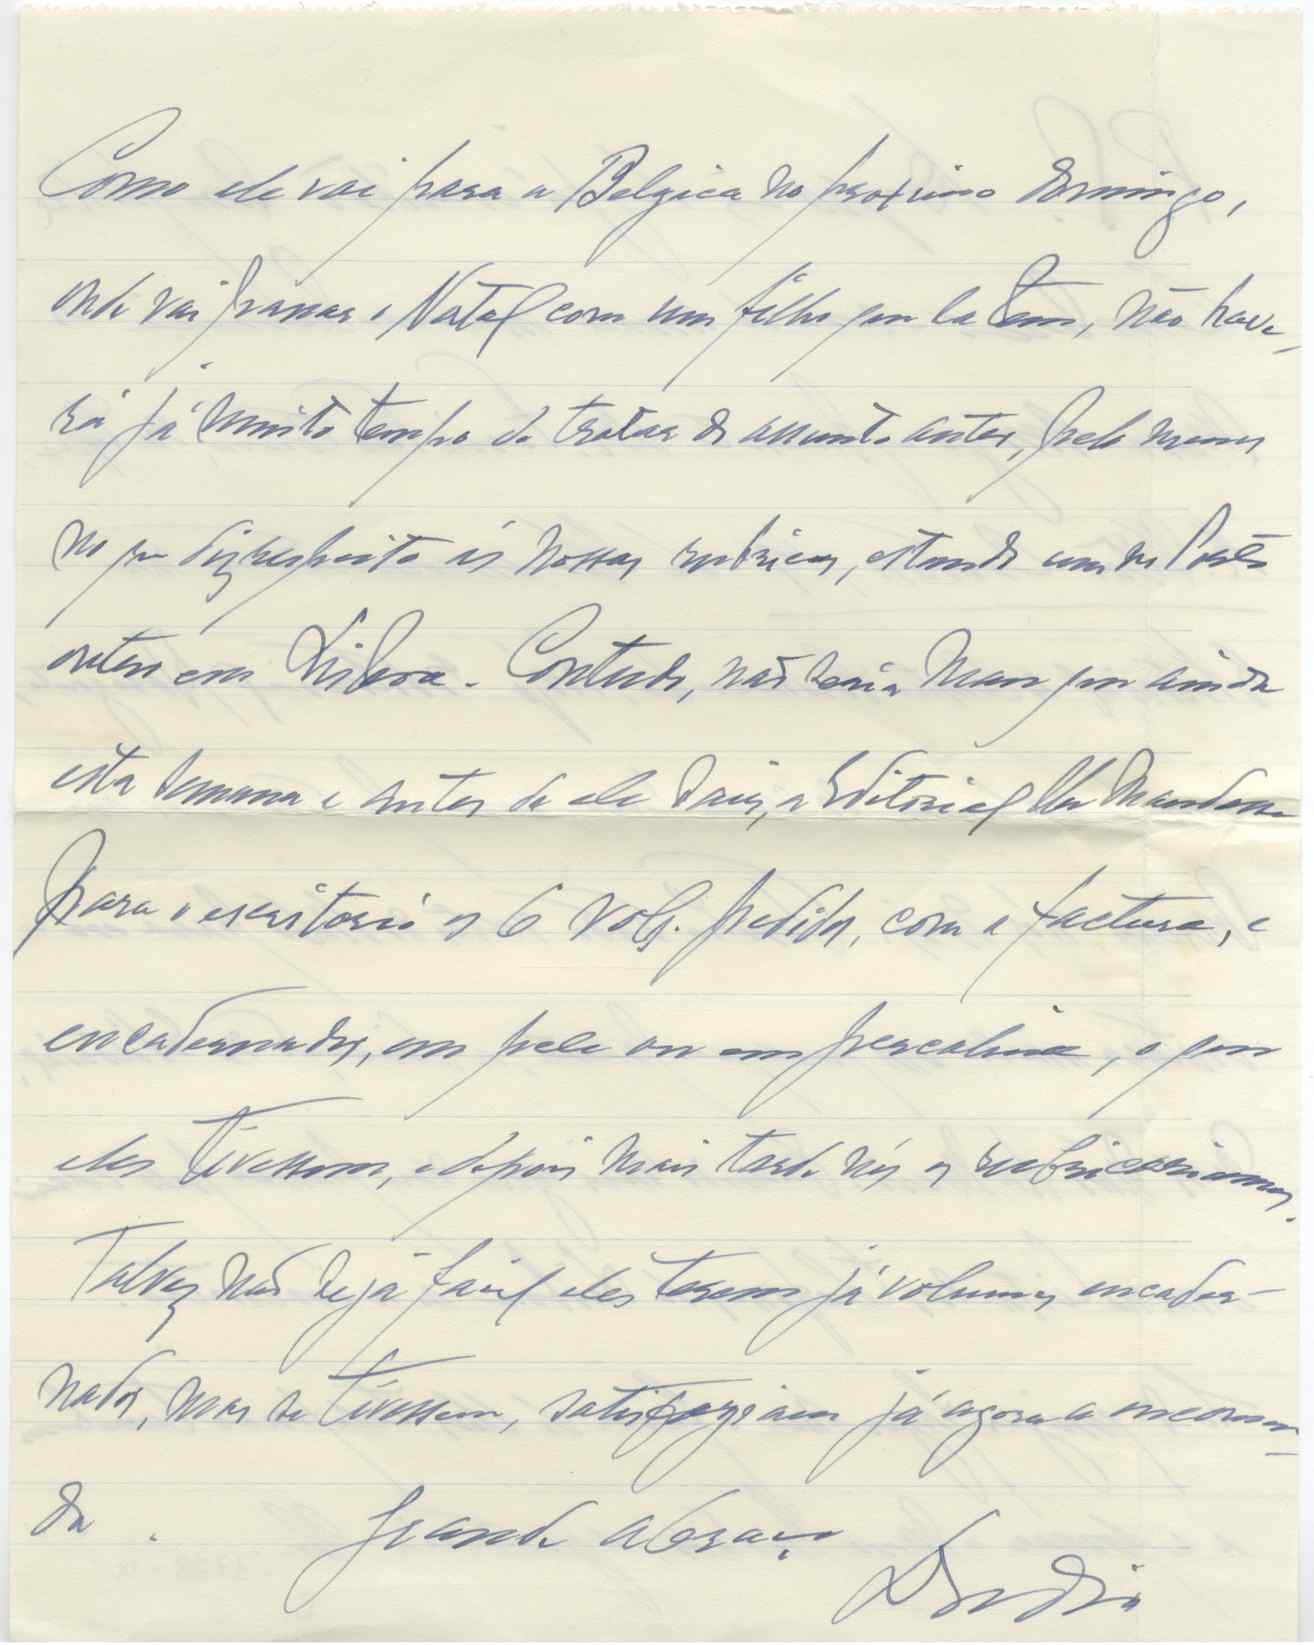 Como ele vai para a Belgica no proximo Domingo,
onde vai passar o Natal com um filho que la tem, não have-
rá já muito tempo de tratar do assunto antes, pelo menos
no que diz respeito ás nossas rubricas, estando um no Porto
outro em Lisboa. Contudo, não seria mau que ainda
esta semana e antes de ele sair, a Editorial lhe mandasse
para o escritorio os 6 vols. pedidos, com a factura, e
encadernados, em pele ou em percalina, o que
eles tivessem, e depois mais tarde nós os rubricariamos.
Talvez não seja facil eles terem já volumes encader-
nados, mas se tivessem, satisfaziam já agora a encomen-
da. Grande abraço